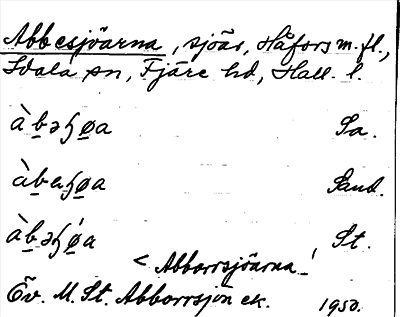 Abbesjöarna, sjöar, Håfors m.fl.,
Idala sn, Fjäre hd, Hall. l.
àb̲əɧø̲a Sa.
àb̲aɧø̲a Sand.
àb̲əɧǿ̲a St.
< Abborrsjöarna!
Öv. M. St. Abborrsjön ek. 1950.